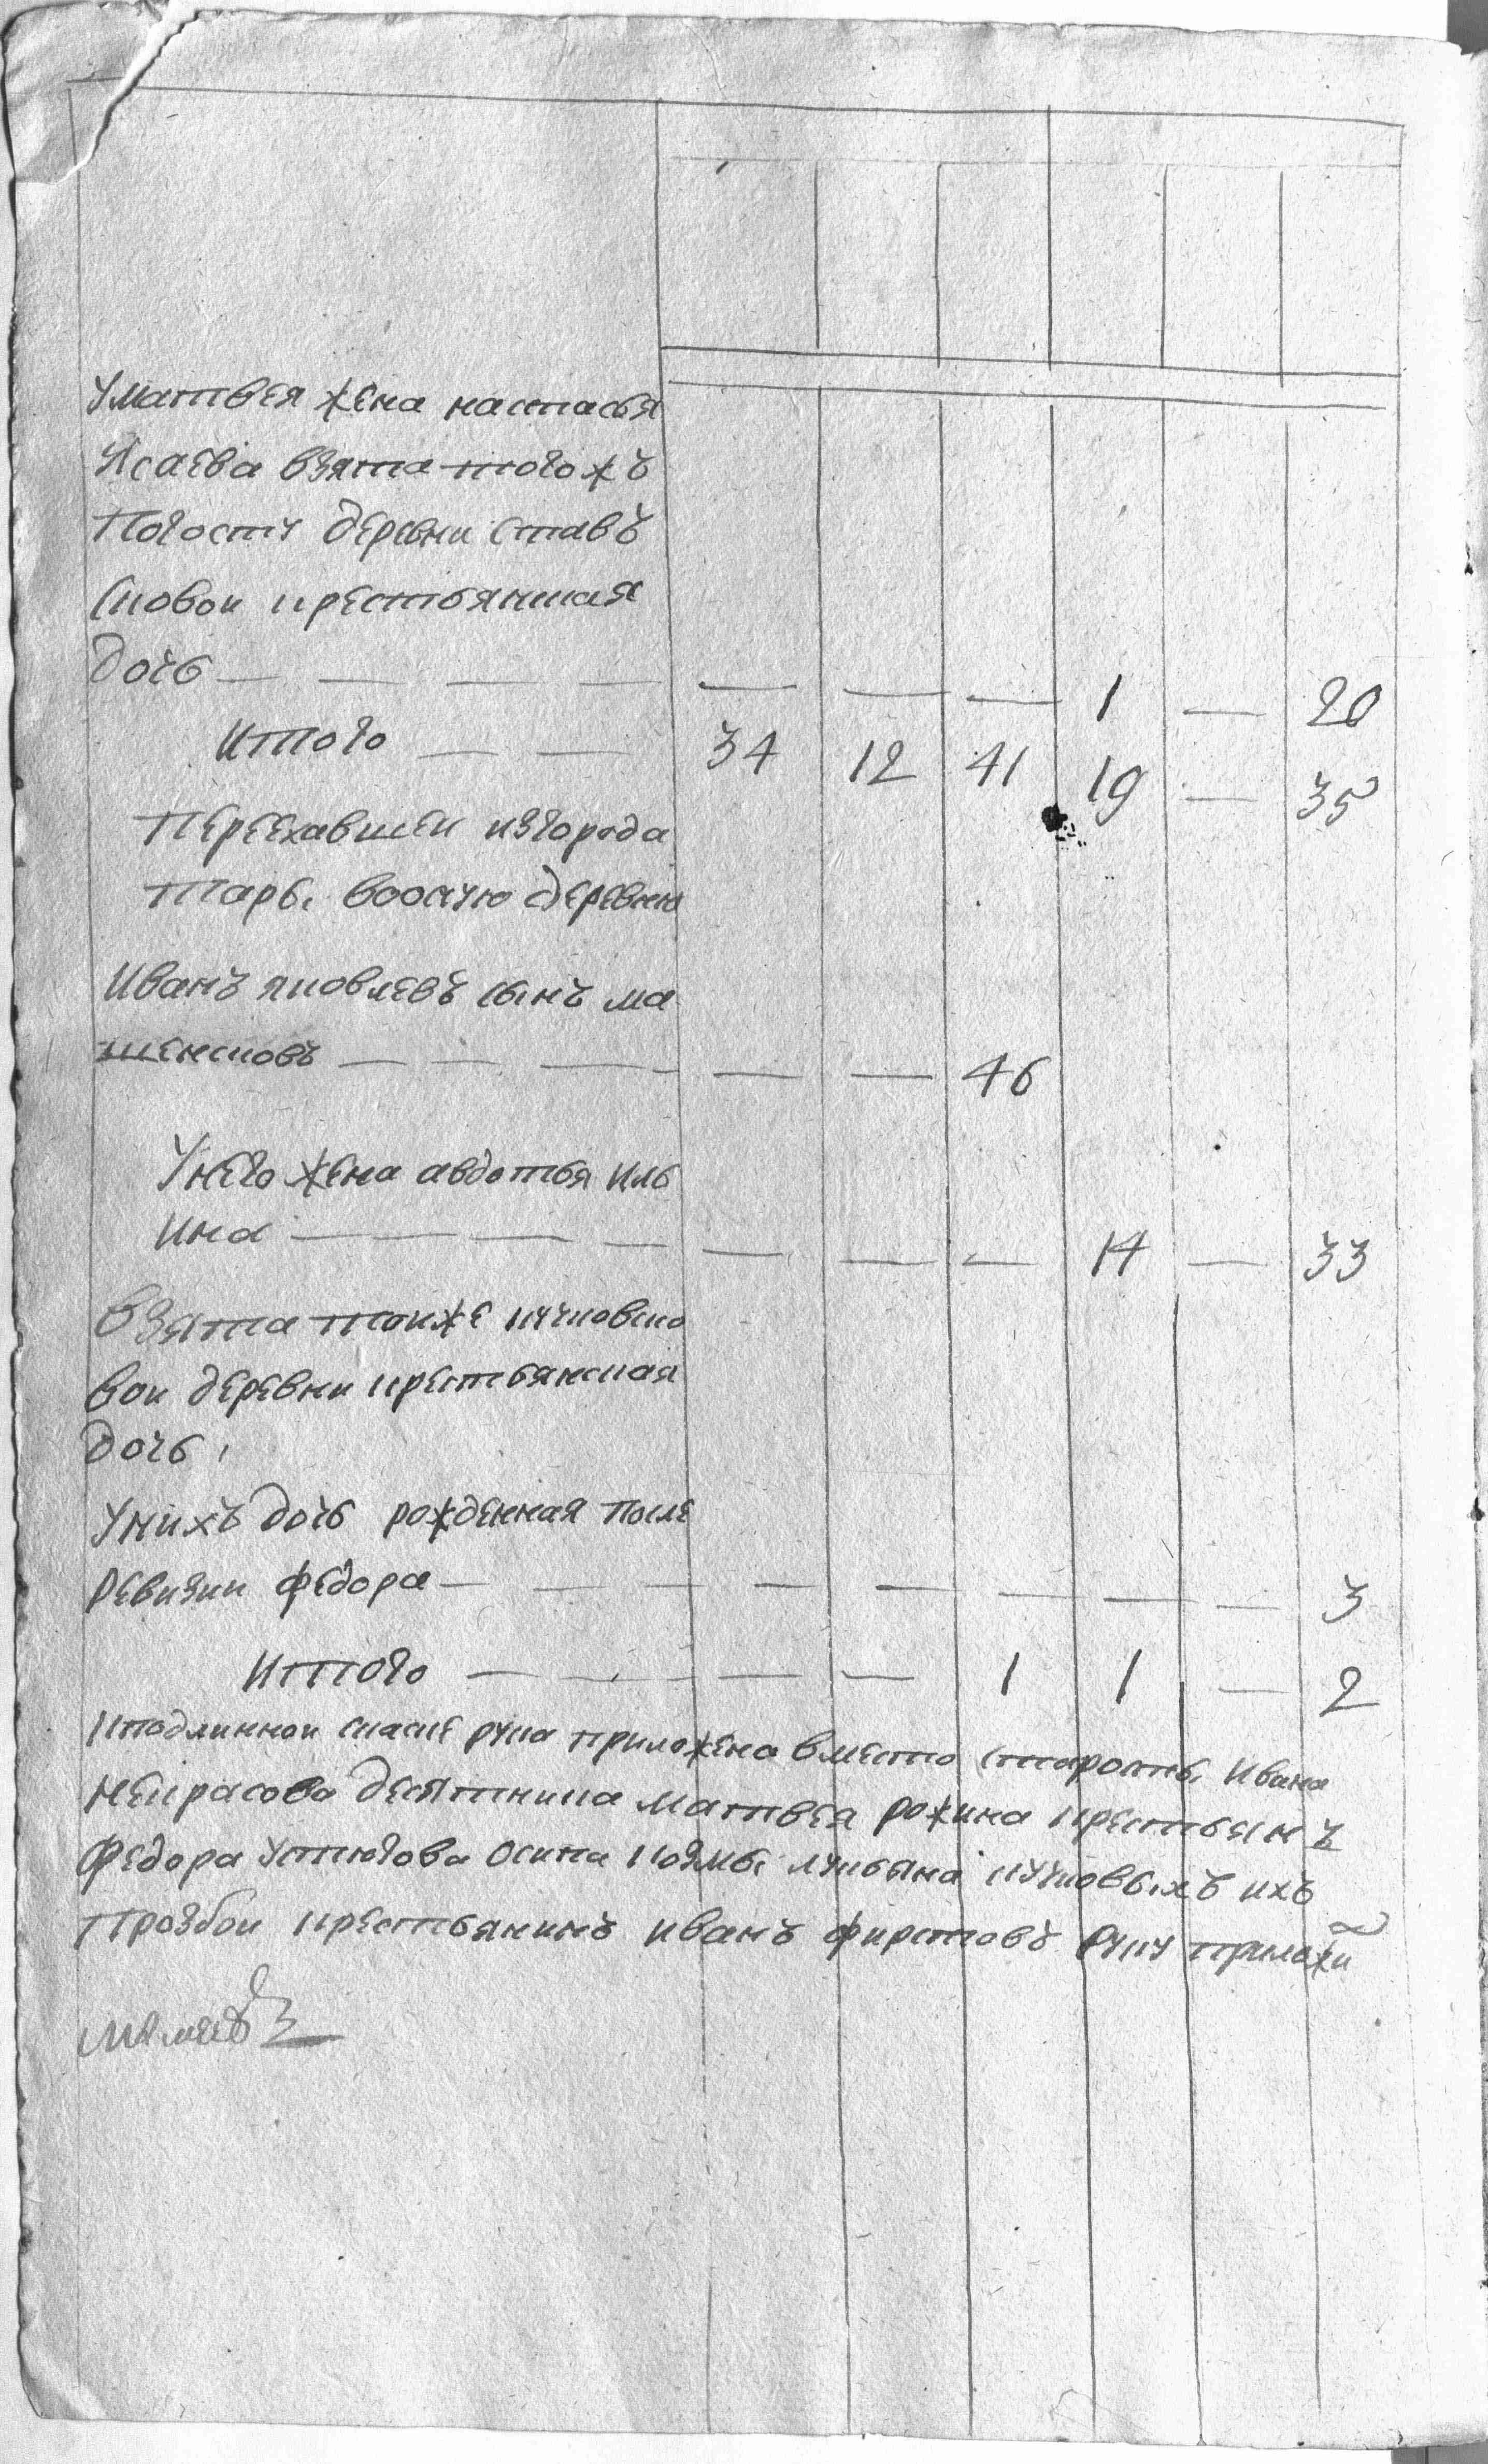 Уматвея жена настасья
Исаева взята тогожъ
Погосту деревни ставъ
сковои крестьянская
дочь — — — — — — — 1 — 20
Итого — — 34 12 41 19 — 35
Переехавшеи изгорода
тары вооную деревню
Иванъ яковлевъ сынъ ма
шенсковъ — — — — — 46
Унего жена авдотья иль
ина — — — — — — — 14 — 33
Взята тоиже кучковско
вои деревни крестьянская
дочь
Унихъ дочь рожденная после
ревизии федора — — — — — — — — 3
Итого — — — — 1 1 — 2
Кподлиннои скаске рука приложена вместо старосты Ивана
некрасова десятника матвея рожина крестьянъ
Федора Устюгова осипа козмы лукьяна кучковыхъ ихъ
прозбои крестьянинъ иванъ фирстовъ руку приложи